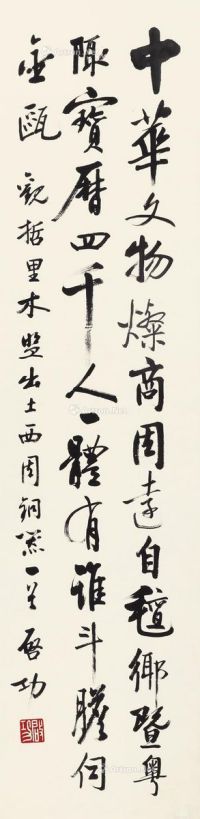 中華文物燦商周遠自氈鄉暨粤
陬寶曆四千人一體有誰斗膽伺
金甌 觀哲里木盟出土西周銅器一首 啟功